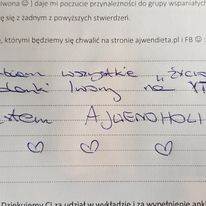 Iwona 😊 ) daje mi poczucie przynależności do grupy wspaniałych
się z żadnym z powyższych stwierdzeń.
, którymi będziemy się chwalić na stronie ajwendieta.pl i FB 😊 :
wszystkie „życio
Iwony na YT
jestem AJWENOHOLI
Dziękujemy Ci za udział w wykładzie i za wypełnienie anki